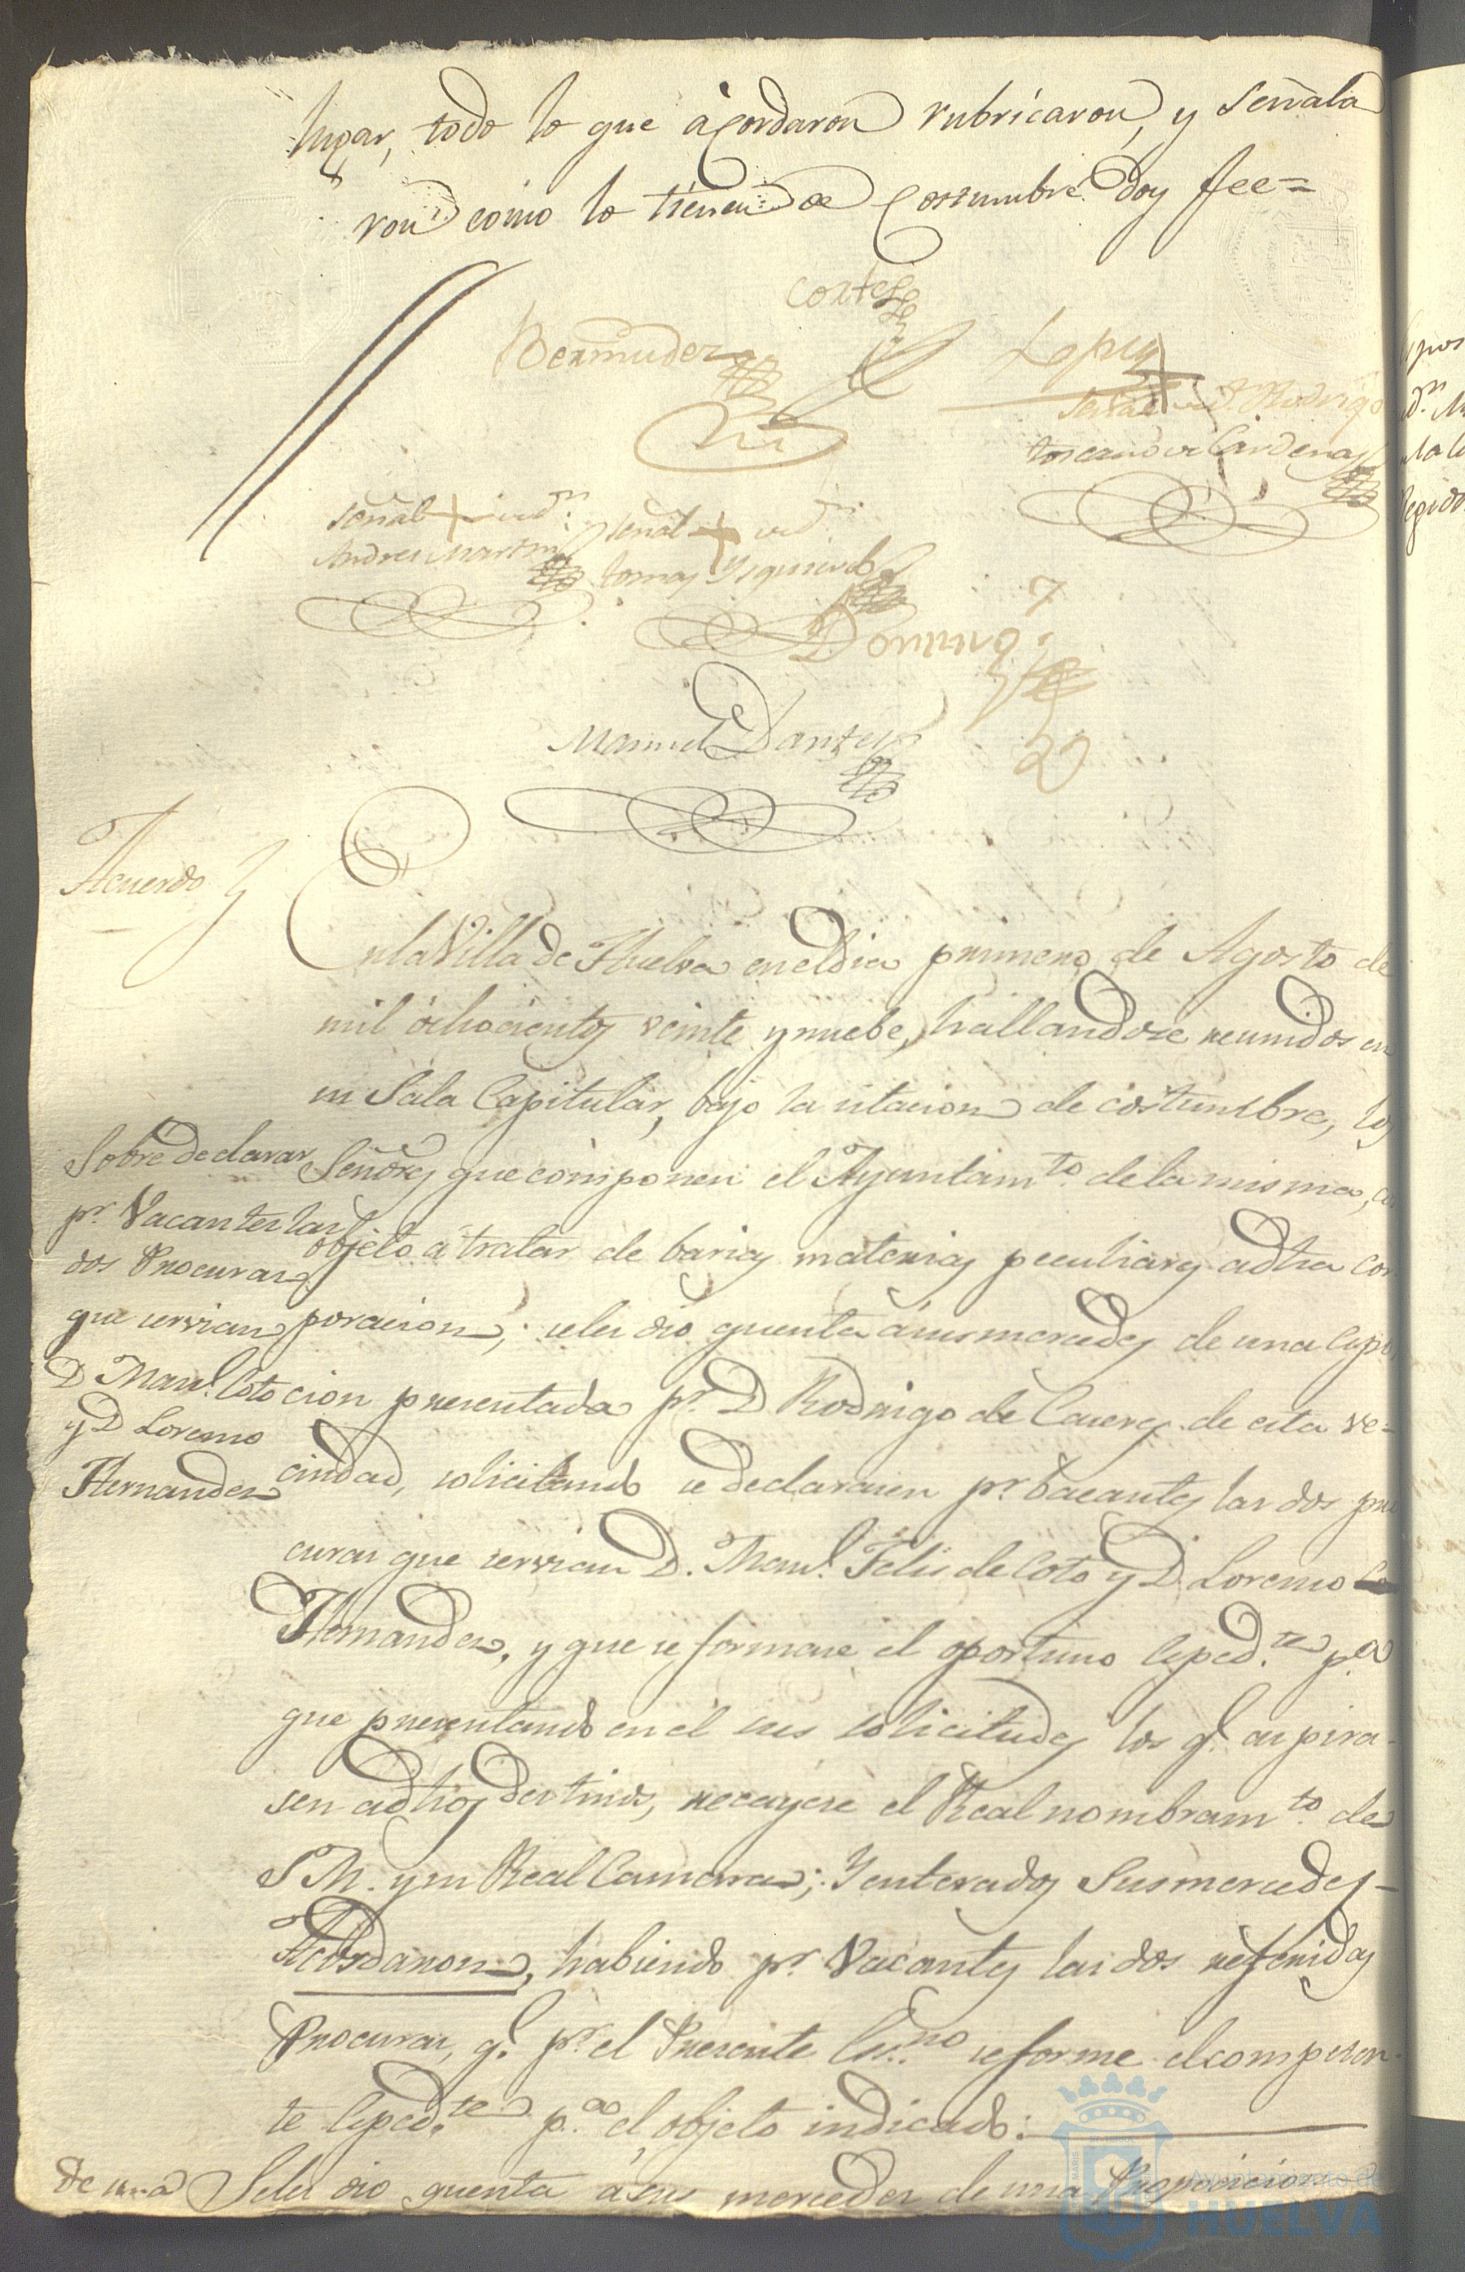 lugar, todo lo que àcordaron rubricaron, y señala
ron como lo tienen de costumbre doy fee=
Cortes
Bermudez
Lopez
Señal + de Dn. Rodrigo
toscano de Cardenas
Señal + de Dn.
Andres Martin
señal + de Dn.
tomas Ysquierdo
Domingz
Manuel Dantes
Acuerdo
En la Villa de Huelva en el dia primero de Agosto de
mil òchocientos veinte y nuebe, hallandose reunidos en
su Sala Capitular, bajo la citacion de costumbre, los
Señores que componen el Ayuntamto. de la misma, con
objeto à tratar de barias materias peculiares adha cor
poracion; seles dio quenta ásus mercedes de una Espo
cion presentada pr. D Rodrigo de Caceres de esta ve-
cindad, solicitando se declarasen pr. bacantes las dos pro
curas que servian D. Manl. Felis de Coto y D. Lorenso
Hernandez, y que se formase el oportuno Esped.te p.a
que presentando en él sus solicitudes los q.e aspira-
sen adhos destinos, recayese el Real nombramto. de
S M. y su Real Camara; Y enterados Sus mercedes-
Acordaron, habiendo pr. Vacantes las dos referidas
Procuras, q.e pr. el Presente Es.no se forme el competen-
te Esped.te p.a el objeto indicado:
Seles dio quenta ásus mercedes de una Proposicion
Sobre declarar
pr. Vacantes las
dos Procuras
que servian
D Manl. Coto
y D Lorenso
Hernandez
de una
Ayuntamiento de
HUELVA